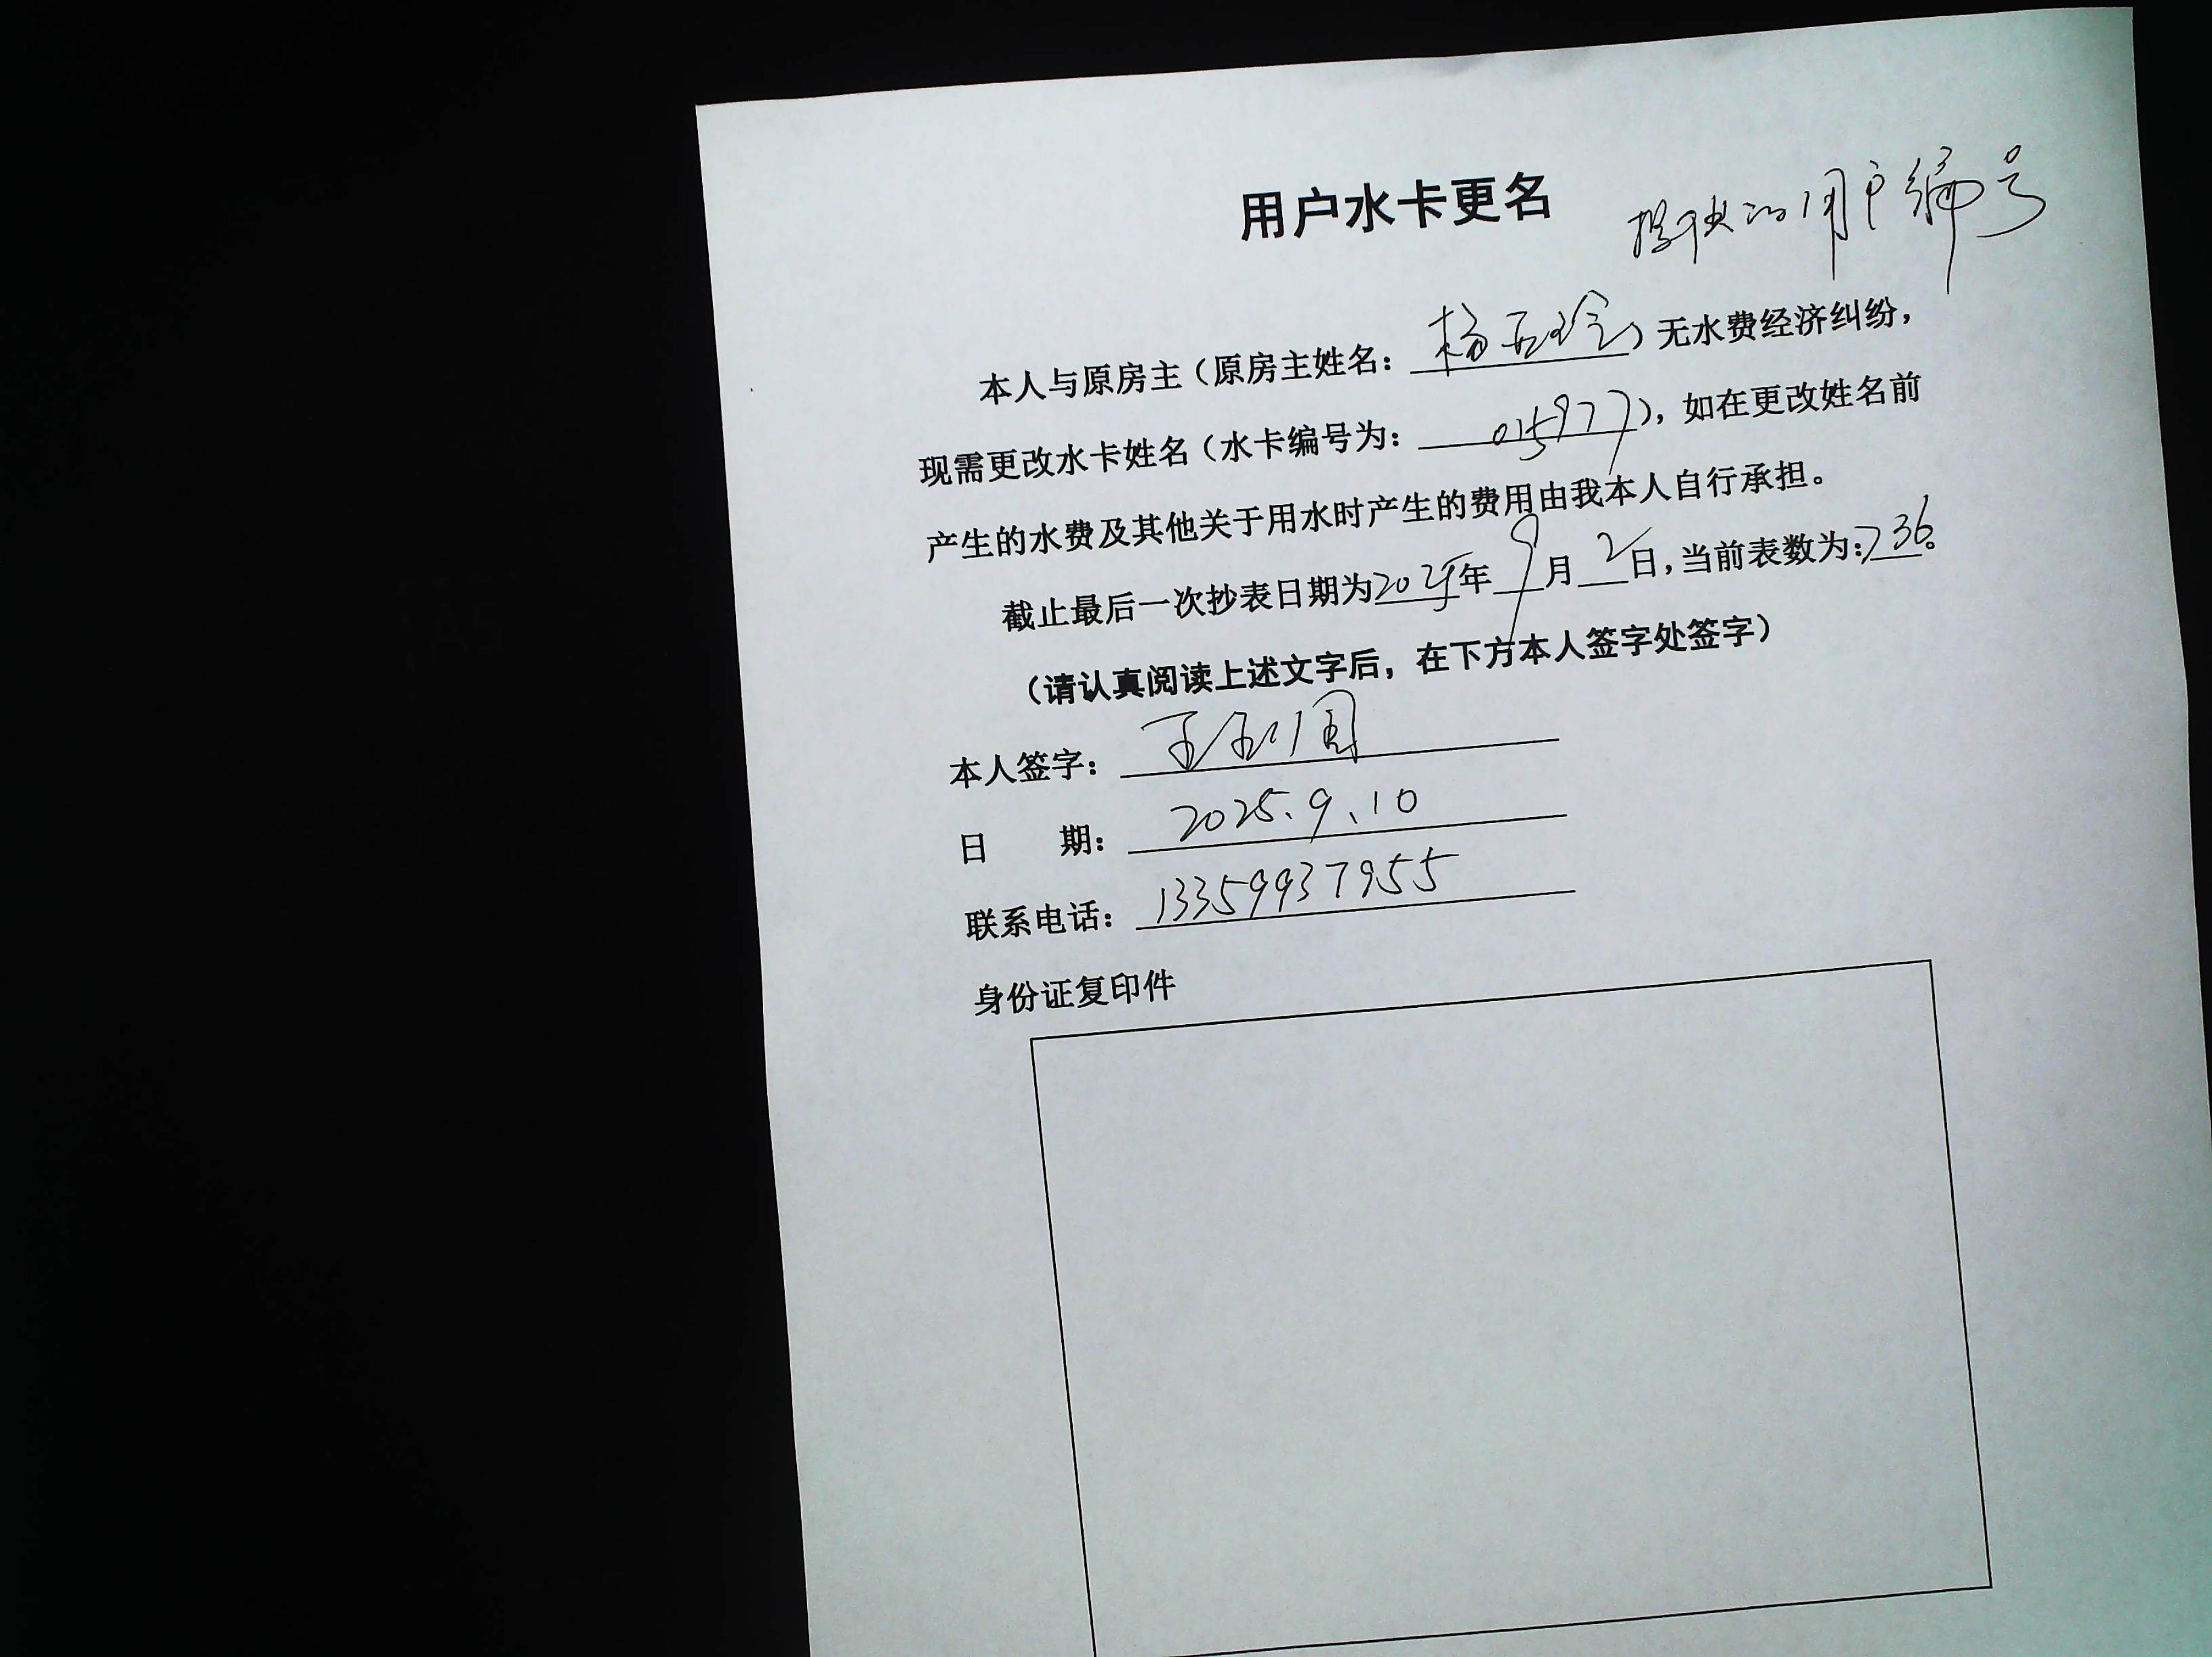 用户水卡更名
的用户编号
本人与原房主（原房主姓名：杨玉玲）无水费经济纠纷，
现需更改水卡姓名（水卡编号为：015977），如在更改姓名前
产生的水费及其他关于用水时产生的费用由我本人自行承担。
截止最后一次抄表日期为2025年9月2日，当前表数为：736。
（请认真阅读上述文字后，在下方本人签字处签字）
本人签字：
日 期：2025.9.10
联系电话：13359937955
身份证复印件